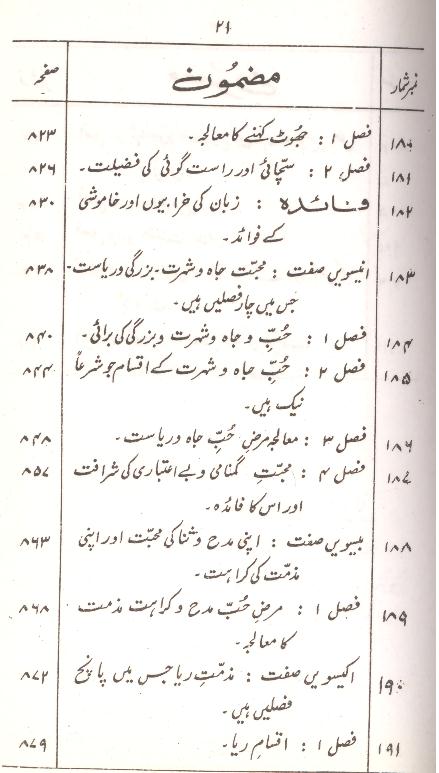 ۲۱
نمبرشمار مضمُون صفحہ
۱۸۰ فصل ۱ : جھُوٹ کہنے کا معالجہ۔ ۸۲۳
۱۸۱ فصل ۲ : سچّائی اور راست گوئی کی فضیلت۔ ۸۲۶
۱۸۲ فائدہ : زبان کی خرابیوں اور خاموشی ۸۳۰
کے فوائد۔
۱۸۳ انیسویں صفت : محبّت جاہ و شہرت۔ بزرگی و ریاست۔ ۸۳۸
جس میں چار فصلیں ہیں۔
۱۸۴ فصل ۱ : حُبِّ و جاہ و شہرت و بزرگی کی برائی۔ ۸۴۰
۱۸۵ فصل ۲ : حُبِّ جاہ و شہرت کے اقسام جو شرعاً ۸۴۴
نیک ہیں۔
۱۸۶ فصل ۳ : معالجہ مرضِ حُبِّ جاہ و ریاست۔ ۸۴۸
۱۸۷ فصل ۴ : محبّتِ گمنامی و بے اعتباری کی شرافت ۸۵۷
اور اس کا فائدہ۔
۱۸۸ بیسویں صفت : اپنی مدح و ثنا کی محبّت اور اپنی ۸۶۳
مذمّت کی کراہت۔
۱۸۹ فصل ۱ : مرضِ حُبِّ مدح و کراہت مذمت ۸۶۸
کا معالجہ۔
۱۹۰ اکیسویں صفت : مذمّتِ ریا جس میں پانچ ۸۷۲
فصلیں ہیں۔
۱۹۱ فصل ۱ : اقسامِ ریا۔ ۸۷۹